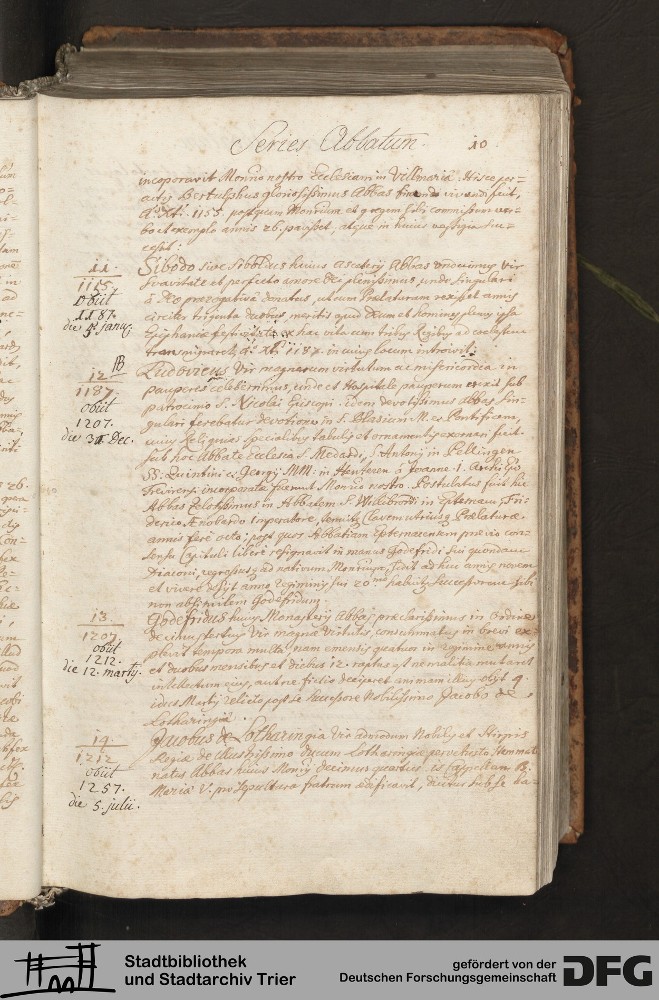 Series Abbatum. 10
incorporavit Monrio nostro Ecclesiam in Villmaria. Hisce per=
actis Bertulphus gloriosissimus Abbas vivendi fecit,
Aō Xti. 1155. postquam Monrium et gregem sibi commissum ver=
bo et exemplo annis 26. pavisset, atque in huius vestigia suc=
cessit:
11.
1155.
obiit
1187.
die 5 januarij
Sibodo sive Sibbldus huius Abbas undecimus vir
suavitate et perfecto amore Dei plenissimus, unde singulari
à Deo prærogativa donatus, Prælaturam rexisset annis
circiter triginta duobus, meritis apud Deum et homines plenus ipsa
Epiphaniæ ex hac vita cum tribus Regibus ad cœlestem
Xti. 1187. in cuius locum introivit:
12. B
1187
obiit
1207.
die 31 Dec.
Ludovicus Vir magnarum virtutum ac misericordia in
pauperes celeberrimus, unde et Hospitale pauperum erexit sub
patrocinio S. Nicolai Episcopi. idem devotissimus Abbas sin=
gulari ferebatur devotione in S. Blasium M. et Pontificem,
cuius Reliquias specialibus tabulis et ornamentis exornari fecit.
sub hoc Abbate Ecclesia S. Medardi, S. Antonij in Pellingen
SS. Quintini et Georgij MM. in Henteren à Joanne I. Archiepo
Trevirensi incorporatæ fuerunt Monrio nostro. Postulatus fuit hic
Abbas zelosissimus in Abbatem S. Willibrordi in Epternaco, Fri=
derico Ænobardo Imperatore, tenuitque Clavem utriusque Prælaturæ
annis fere octo: post quos Abbatiam Epternacensem prævio con=
sensu Capituli liberè resignavit in manus Godefridi sui quondam
Diaconi, regressus ad nativum Monrium, vixit ad huc annis novem
et vivere desijt anno regiminis sui 20mo habuitque successorem sibi
non absimilem Godefridum.
13.
1207.
obiit
1212.
die 12. martij.
Godefridus huius Monasterij Abbas præclarissimus in Ordine
decimus tertius Vir magnæ virtutis, consummatus in brevi ex=
plevit tempora multa, nam emensis quatuor in regimine annis
et duobus mensibus, et diebus 12. raptus est ne malitia mutaret
intellectum eius, aut ne fictio deciperet animam illius obijt 4
idus Martij relicto post se successore Nobilissimo Jacobo de
Lotharingia.
14.
1212
obiit
1257.
die 5. julii.
Jacobus de Lotharingia Vir admodum Nobilis et Stirpis
Regiæ de illustrissimo Ducum Lotharingiæ pervetusto stemmate
natus Abbas huius Monrij decimus quartus. is Capellam B.
Mariæ V. pro sepultura fratrum ædificavit, ductus subsse ba
Stadtbibliothek
und Stadtarchiv Trier
gefördert von der
Deutschen Forschungsgemeinschaft
DFG